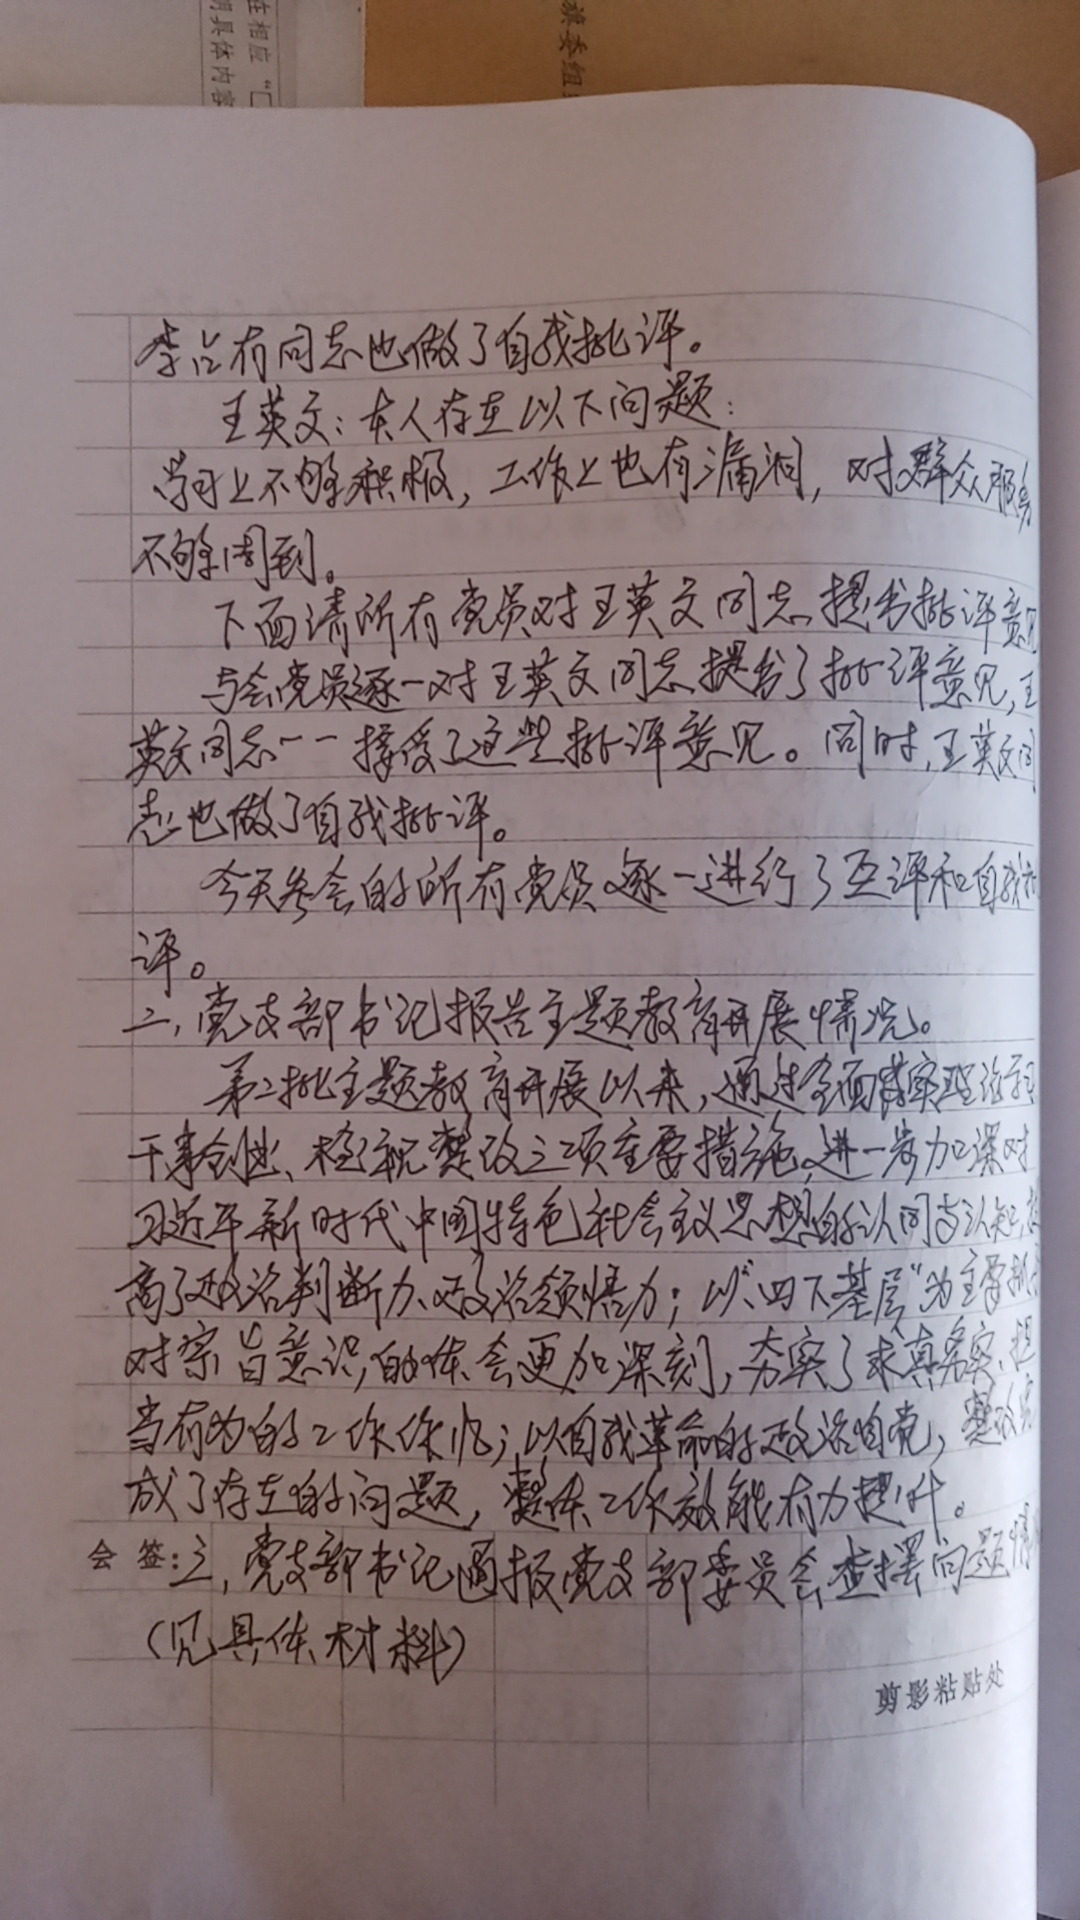 在相应“□
明具体内容
旗委组
李占有同志也做了自我批评。
王英文：本人存在以下问题：
学习上不够积极，工作上也有漏洞，对群众服务
不够周到。
下面请所有党员对王英文同志提出批评意见
与会党员逐一对王英文同志提出了批评意见，王
英文同志一一接受了这些批评意见。同时，王英文同
志也做了自我批评。
今天参会的所有党员逐一进行了互评和自我批
评。
二，党支部书记报告主题教育开展情况。
第二批主题教育开展以来，通过全面落实理论学习
干事创业、检视整改三项主要措施，进一步加深对
习近平新时代中国特色社会主义思想的认同与认知，提
高了政治判断力、政治领悟力；以“四下基层”为主要抓手
对宗旨意识的体会更加深刻，夯实了求真务实、担
当有为的工作作风；以自我革命的政治自觉，整改完
成了存在的问题，整体工作效能有力提升。
会 签：三，党支部书记通报党支部委员会查摆问题情况
（见具体材料）
剪影粘贴处